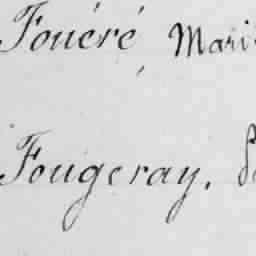 Fouéré Mari
Fougeray.